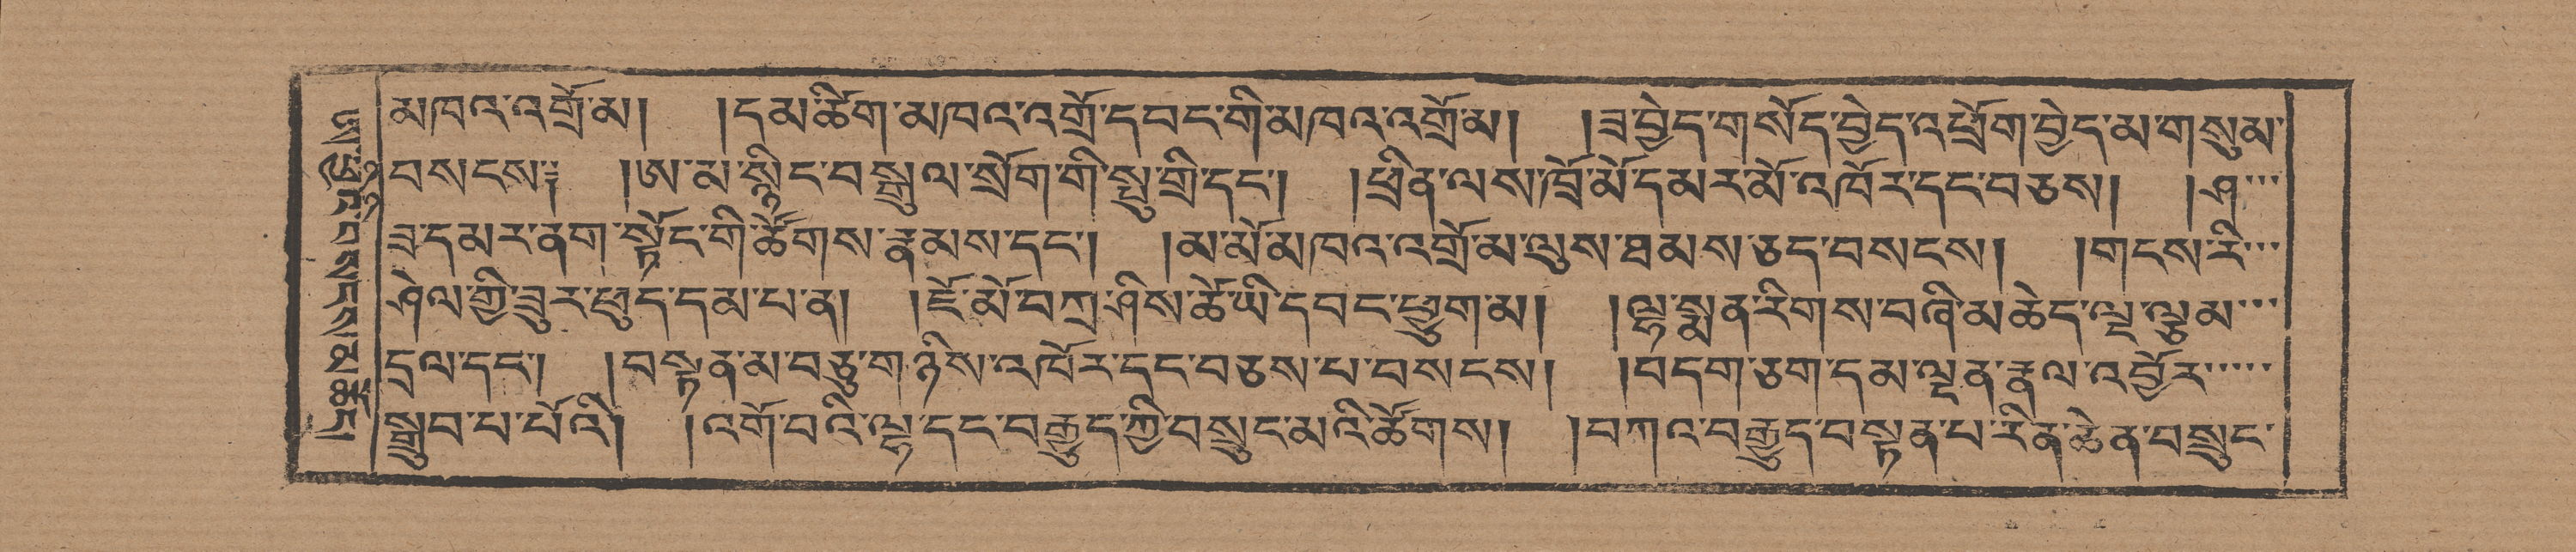 མ་ཁའ་འགྲོ་མ། །དམ་ཚིག་མ་ཁའ་འགྲོ་དབང་གི་མ་ཁའ་འགྲོ་མ། །ཟ་བྱེད་གསོད་བྱེད་འཕྲོག་བྱེད་མ་གསུམ་
བསངས༔ །ཨ་མ་སྙིང་བསྒྲལ་སྲོག་གི་སྤུ་གྲི་དང་། །ཕྲིན་ལས་ཁྲོ་མོ་དམར་མོ་འཁོར་དང་བཅས། །ཤ་་་
ཟ་དམར་ནག་སྟོང་གི་ཚོགས་རྣམས་དང་། །མ་མོ་མ་ཁའ་འགྲོ་མ་ལུས་ཐམས་ཅད་བསངས། །གངས་རི་་་
ཤེལ་གྱི་ཟུར་ཕུད་དམ་པ་ན། །ཇོ་མོ་བཀྲ་ཤིས་ཚེ་ཡི་དབང་ཕྱུག་མ། །ལྷ་སྨན་རིགས་བཞི་མཆེད་ལྔ་ལྕམ་་་
དྲལ་དང་། །བསྟན་མ་བཅུ་གཉིས་འཁོར་དང་བཅས་པ་བསངས། །བདག་ཅག་དམ་ལྡན་རྣལ་འབྱོར་་་་་
སྒྲུབ་པ་པོའི། །འགོ་བའི་ལྷ་དང་བརྒྱུད་ཀྱི་བསྲུང་མའི་ཚོགས། །བཀའ་བརྒྱུད་བསྟན་པ་རིན་ཆེན་བསྲུང་